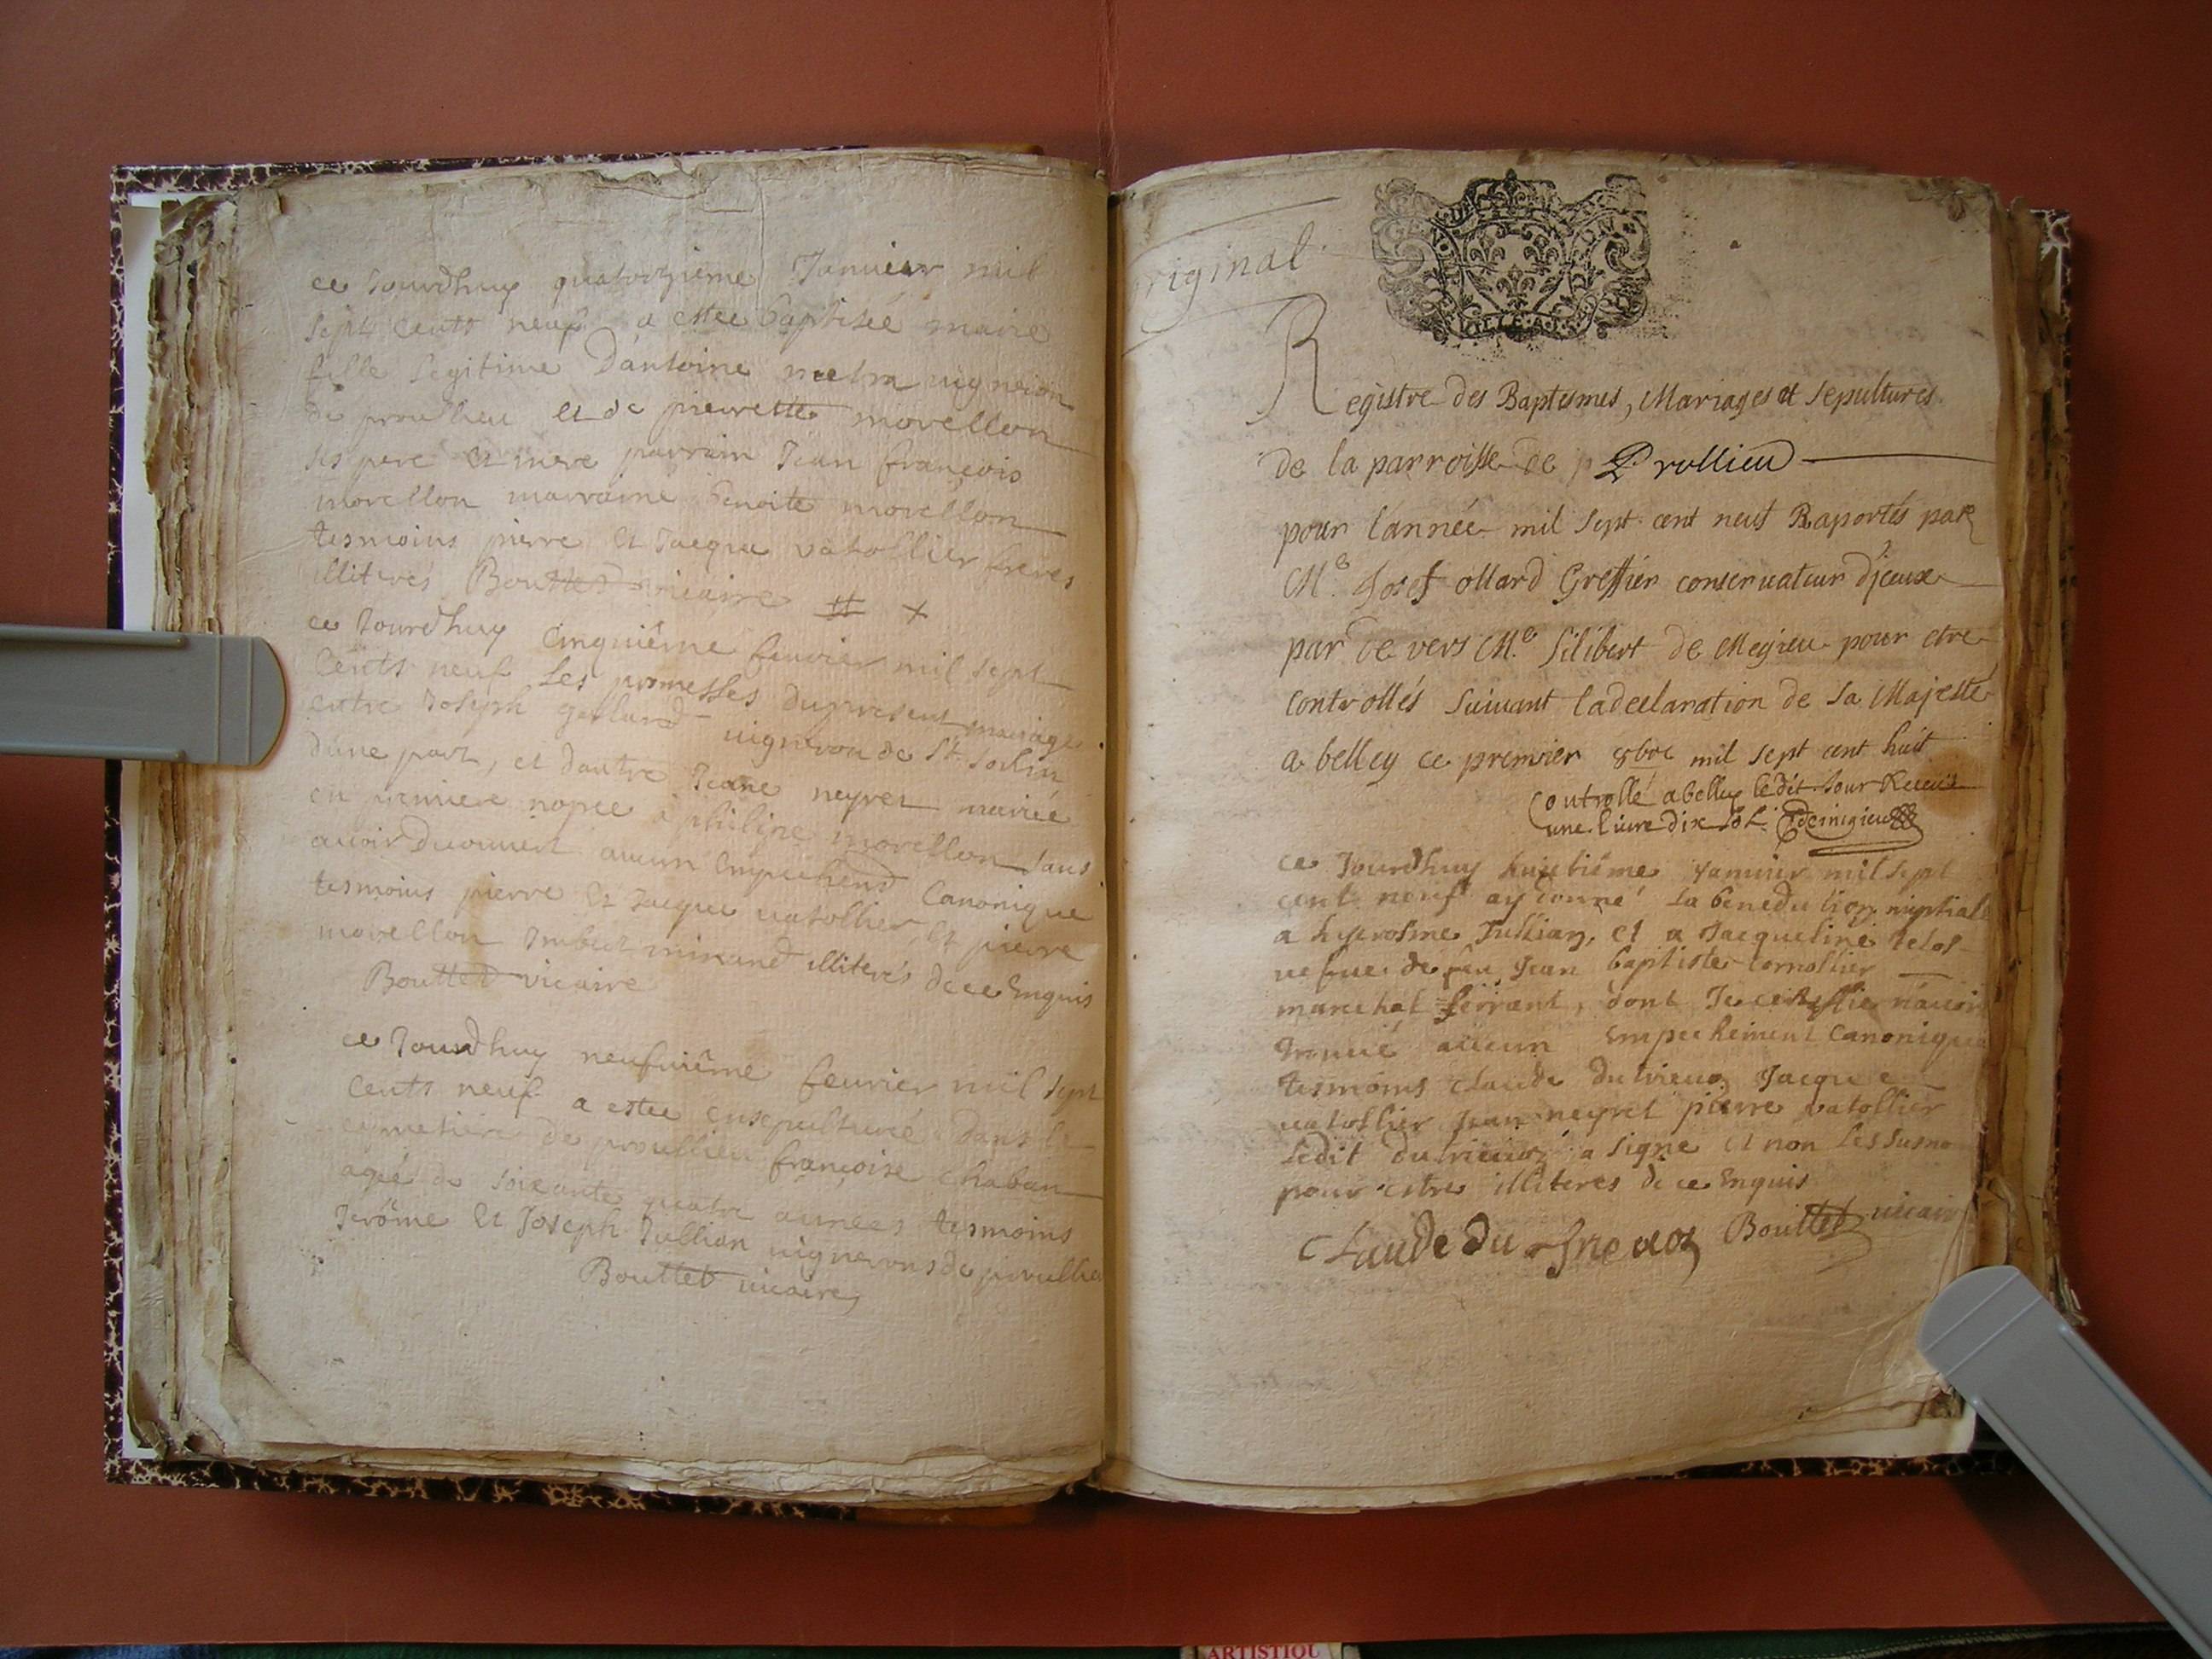 ce Jourdhuy quatorzieme Januier mil
sept cents neuf a estee baptisée marie
fille legitime D'antoine metra uigneron
de proulieu et de pierrette morellon
ses pere et mere parrain Jean françois
morellon marraine benoite morellon
tesmoins pierre et Jacque vatollier freres
illiterés Bouttet vicaire # +
ce Jourdhuy Cinquiême feurier mil sept
Cents neuf Les promesses du present mariage
entre Joseph uigneron de St. Sorlin
d'une part, et d'autre Jeane neyret mariée
en premiere nopce a philipe morellon sans
auoir decouuert aucun Empechemt Canonique
tesmoins pierre et Jacque uatollier, et pierre
morellon Imbert minand illiterés de ce Enquis
Bouttet vicaire
ce Jourdhuy neufuiême feurier mil sept
Cents neuf a estee ensepulturée dans le
cymetiere de proullieu françoise Chaban
agée de soixante quatre années tesmoins
Jerôme et Joseph Jullian uignerons de proullieu
Bouttet uicaire
riginal
GEN DE
Registre des Baptesmes, Mariages et sepultures
de la parroisse de p Prullieu
pour l'année mil sept cent neuf Raportés par
Me. Josef ollard Greffier conseruateur d'jceux
par de vers Me. filibert de Megieu pour etre
controllés suiuant la declaration de sa Majesté
a belley ce premier 8bre mil sept cent huit
Controllé a belley ledit Jour Receu
une liure dix sols
ce Jourdhuy huictiême Januier mil sept
cent neuf ay donné la benediction nuptiale
a hyerosme Jullian, et a Jacqueline
uefue de feu Jean baptiste cornollier
marechal ferrant, dont Je certiffie n'auoir
trouué aucun Empechement Canonique
tesmoins claude dutrieux Jacque
uatollier Jean neyret pierre vatollier
Ledit dutrieux a signe et non les susno
pour estre illiteres de ce Enquis
Claude du Bouttet uicair